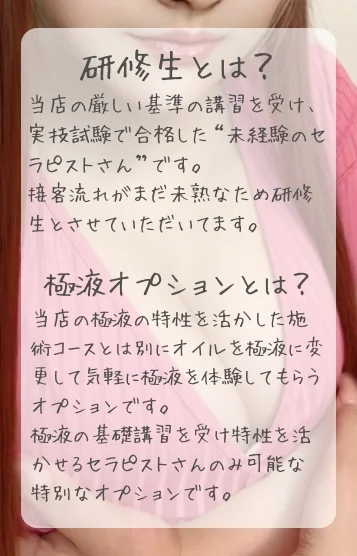 研修生とは？
当店の厳しい基準の講習を受け、
実技試験で合格した“未経験のセ
ラピストさん”です。
接客流れがまだ未熟なため研修
生とさせていただいてます。
極液オプションとは？
当店の極液の特性を活かした施
術コースとは別にオイルを極液に変
更して気軽に極液を体験してもらう
オプションです。
極液の基礎講習を受け特性を活
かせるセラピストさんのみ可能な
特別なオプションです。